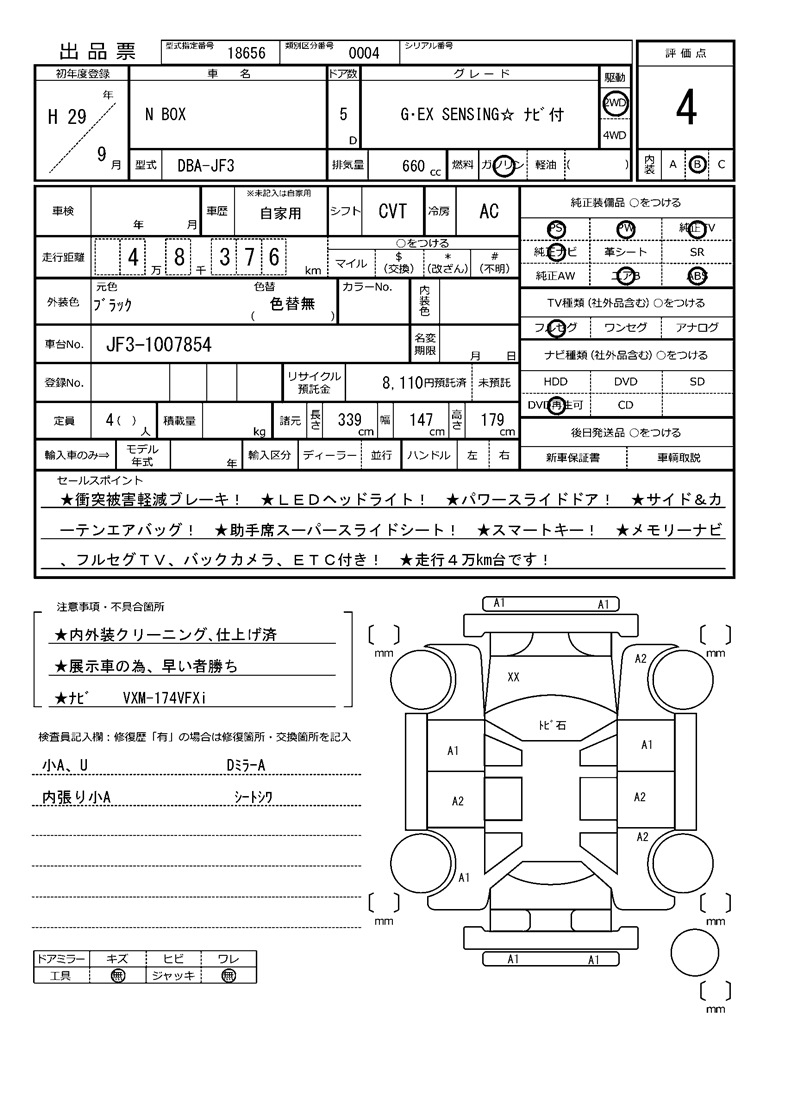 出品票 型式指定番号 18656 類別区分番号 0004 シリアル番号
評価点
4
内装 A B C
初年度登録 車名 ドア数 グレード 駆動
H 29 年 9 月
N BOX 5 D G･EX SENSING☆ ﾅﾋﾞ付 2WD
4WD
型式 DBA-JF3 排気量 660 cc 燃料 ガソリン 軽油 ( )
車検 年 月 車歴 ※未記入は自家用 自家用 シフト CVT 冷房 AC
走行距離 4 万 8 千 3 7 6 km
○をつける
マイル $(交換) *(改ざん) #(不明)
外装色 元色 ﾌﾞﾗｯｸ 色替 色替無 ( ) カラーNo. 内装色
車台No. JF3-1007854 名変期限 月 日
登録No. リサイクル預託金 8,110円預託済 未預託
定員 4( )人 積載量 kg 諸元 長さ 339 cm 幅 147 cm 高さ 179 cm
輸入車のみ⇒ モデル年式 年 輸入区分 ディーラー 並行 ハンドル 左 右
純正装備品 ○をつける
PS PW 純正TV
純正ナビ 革シート SR
純正AW エアB ABS
TV種類(社外品含む)○をつける
フルセグ ワンセグ アナログ
ナビ種類(社外品含む)○をつける
HDD DVD SD
DVD再生可 CD
後日発送品 ○をつける
新車保証書 車輌取説
セールスポイント
★衝突被害軽減ブレーキ！ ★ＬＥＤヘッドライト！ ★パワースライドドア！ ★サイド＆カ
ーテンエアバッグ！ ★助手席スーパースライドシート！ ★スマートキー！ ★メモリーナビ
、フルセグＴＶ、バックカメラ、ＥＴＣ付き！ ★走行４万km台です！
注意事項・不具合箇所
★内外装クリーニング､仕上げ済
★展示車の為、早い者勝ち
★ﾅﾋﾞ VXM-174VFXi
検査員記入欄：修復歴「有」の場合は修復箇所・交換箇所を記入
小A、U DﾐﾗｰA
内張り小A ｼｰﾄｼﾜ
ドアミラー キズ ヒビ ワレ
工具 無 ジャッキ 無
A1 A1
mm mm
A2
XX
ﾄﾋﾞ石
A1 A1
A2 A2
A2
A1
mm mm
A1 A1
mm